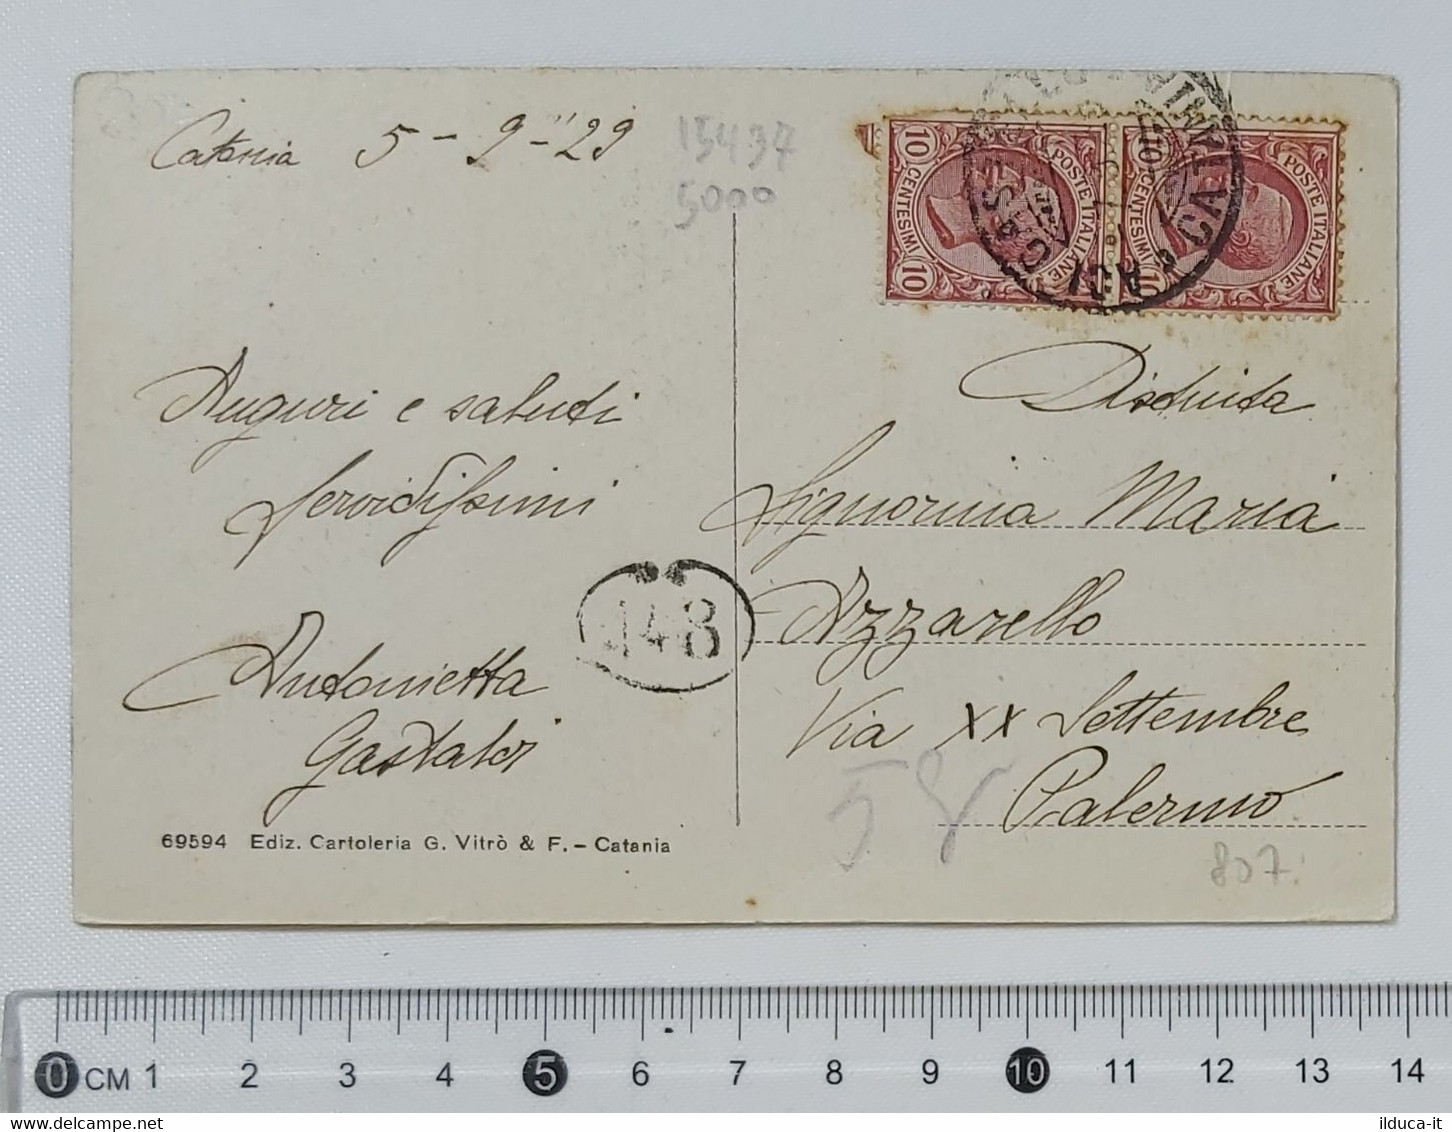 Catania 5-9-"29
15437
5000
10 CENTESIMI 10 POSTE ITALIANE
10 CENTESIMI 10 POSTE ITALIANE
ACI CATENA
Auguri e saluti
fervidissimi
Antonietta
Gastaldi
148
Distinta
Signorina Maria
Azzarello
Via XX Settembre
58
Palermo
807
69594 Ediz. Cartoleria G. Vitrò & F. - Catania
0 CM 1 2 3 4 5 6 7 8 9 10 11 12 13 14
www.delcampe.net
ilduca-it